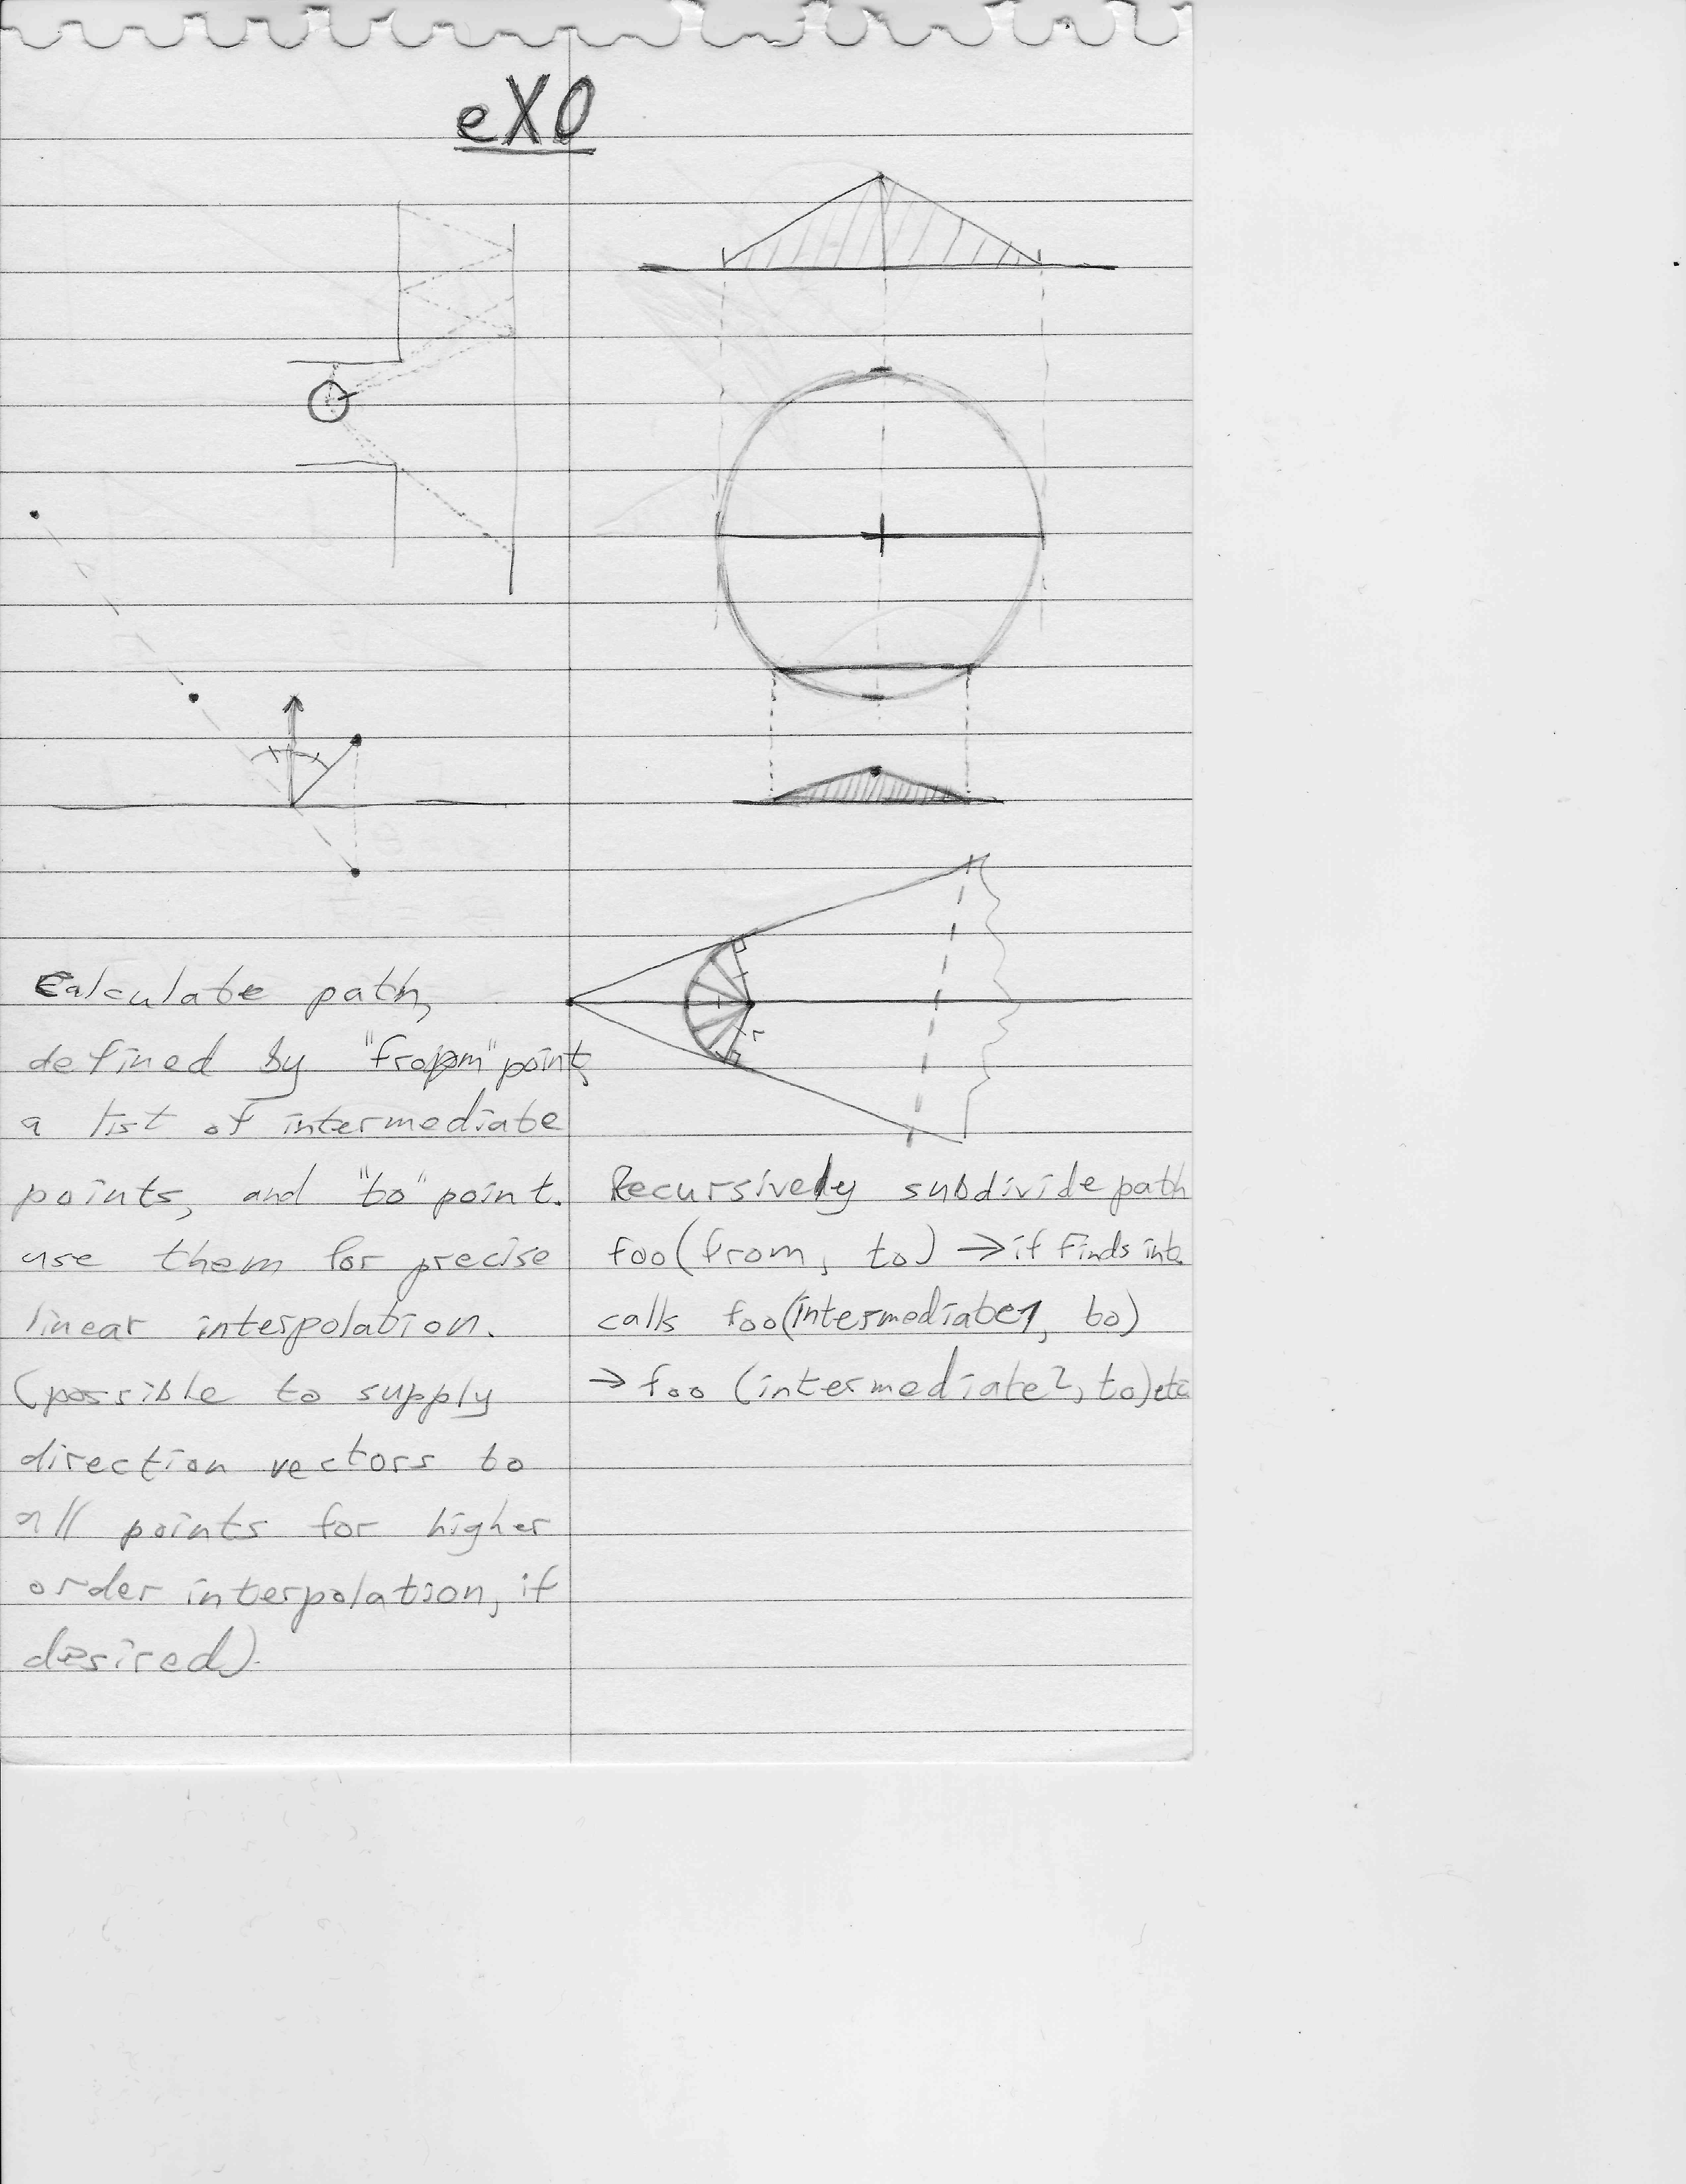 eX0
Calculate path,
defined by "from" point,
a list of intermediate
points, and "to" point.
use them for precise
linear interpolation.
(possible to supply
direction vectors to
all points for higher
order interpolation, if
desired).
r
Recursively subdivide path
foo(from, to) → if finds int.
calls foo(intermediate1, to)
→ foo (intermediate2, to) etc